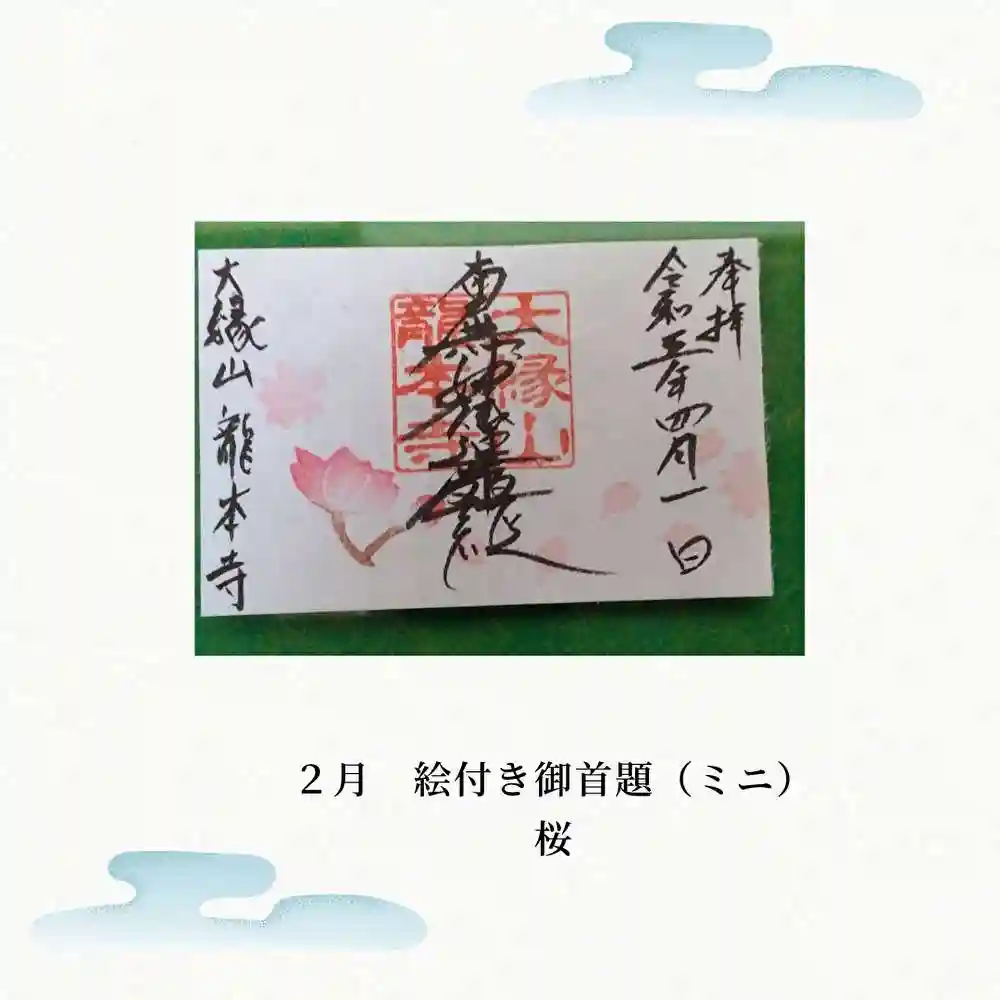 奉拝
令和三年四月一日
南無妙法蓮華経
大縁山
龍本寺
大縁山龍本寺
２月　絵付き御首題（ミニ）
桜